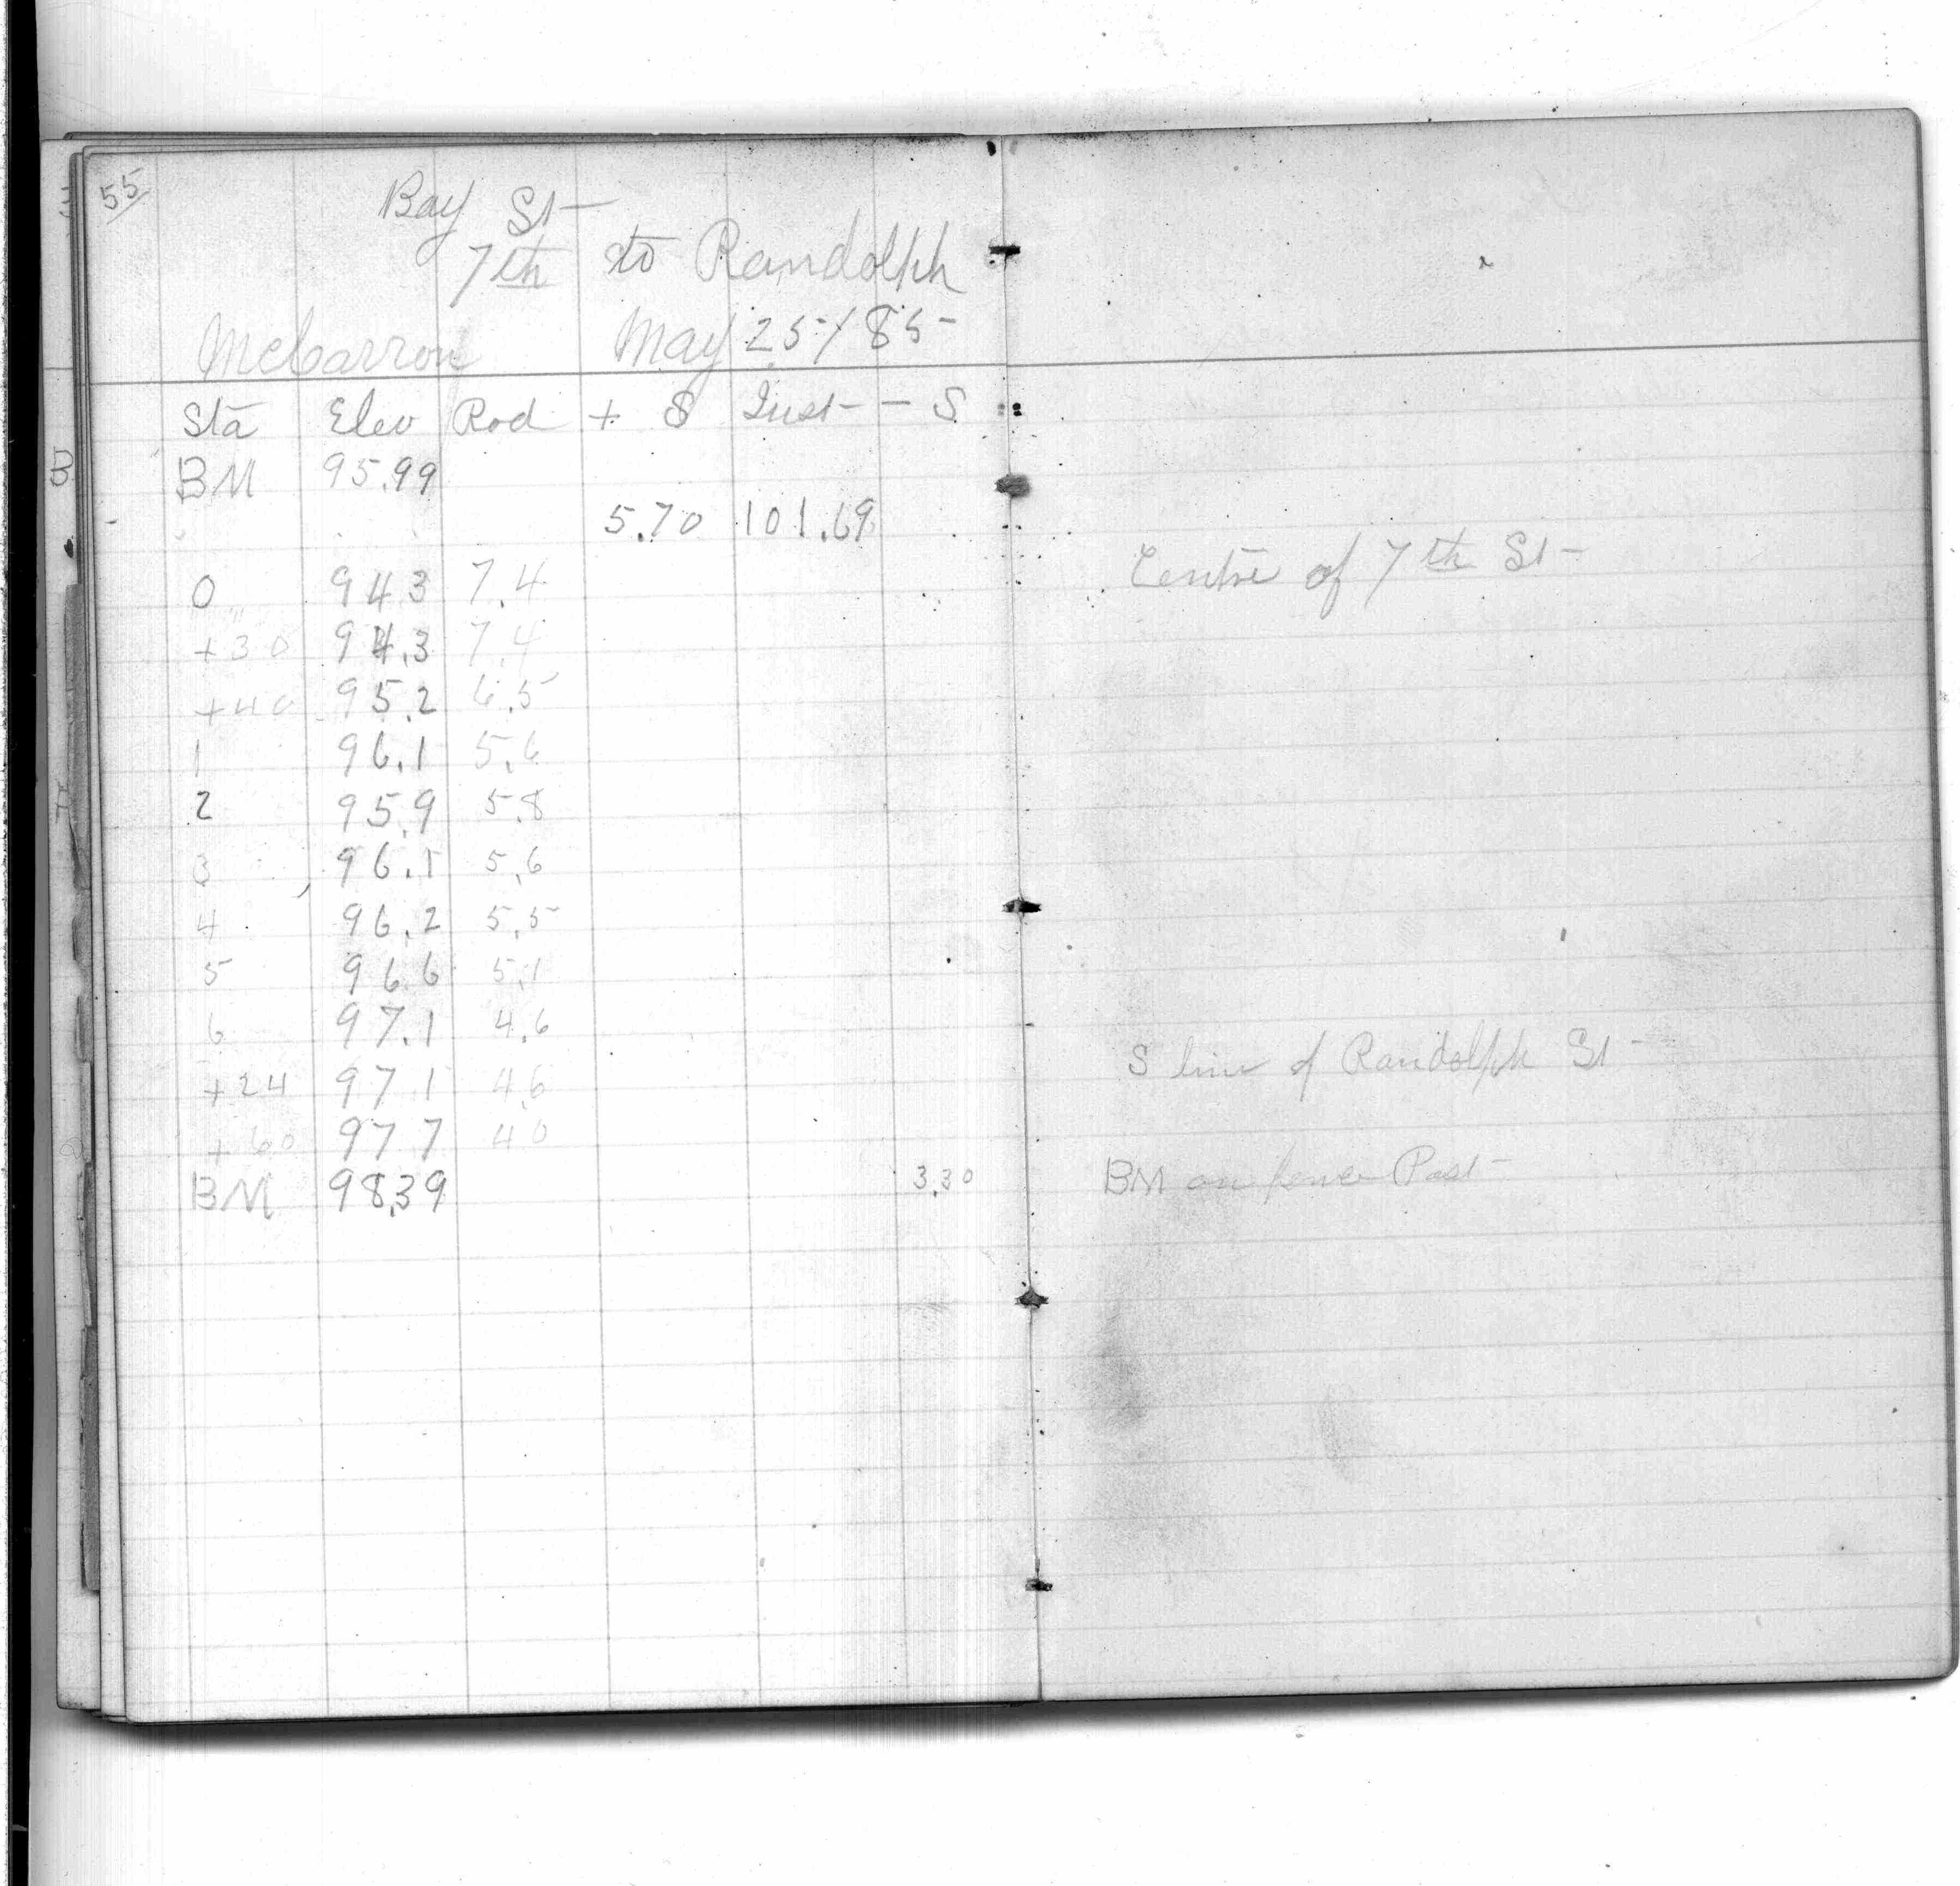 55
Bay St
7th to Randolph
McCarron May 25/85
Sta Elev Rod + S Inst - S
BM 95.99
5.70 101.69
0 94.3 7.4 Centre of 7th St
+30 94.3 7.4
+40 95.2 6.5
1 96.1 5.6
2 95.9 5.8
3 96.1 5.6
4 96.2 5.5
5 96.6 5.1
6 97.1 4.6
+24 97.1 4.6 S line of Randolph St
+60 97.7 4.0
BM 98.39 3.30 BM on fence Post